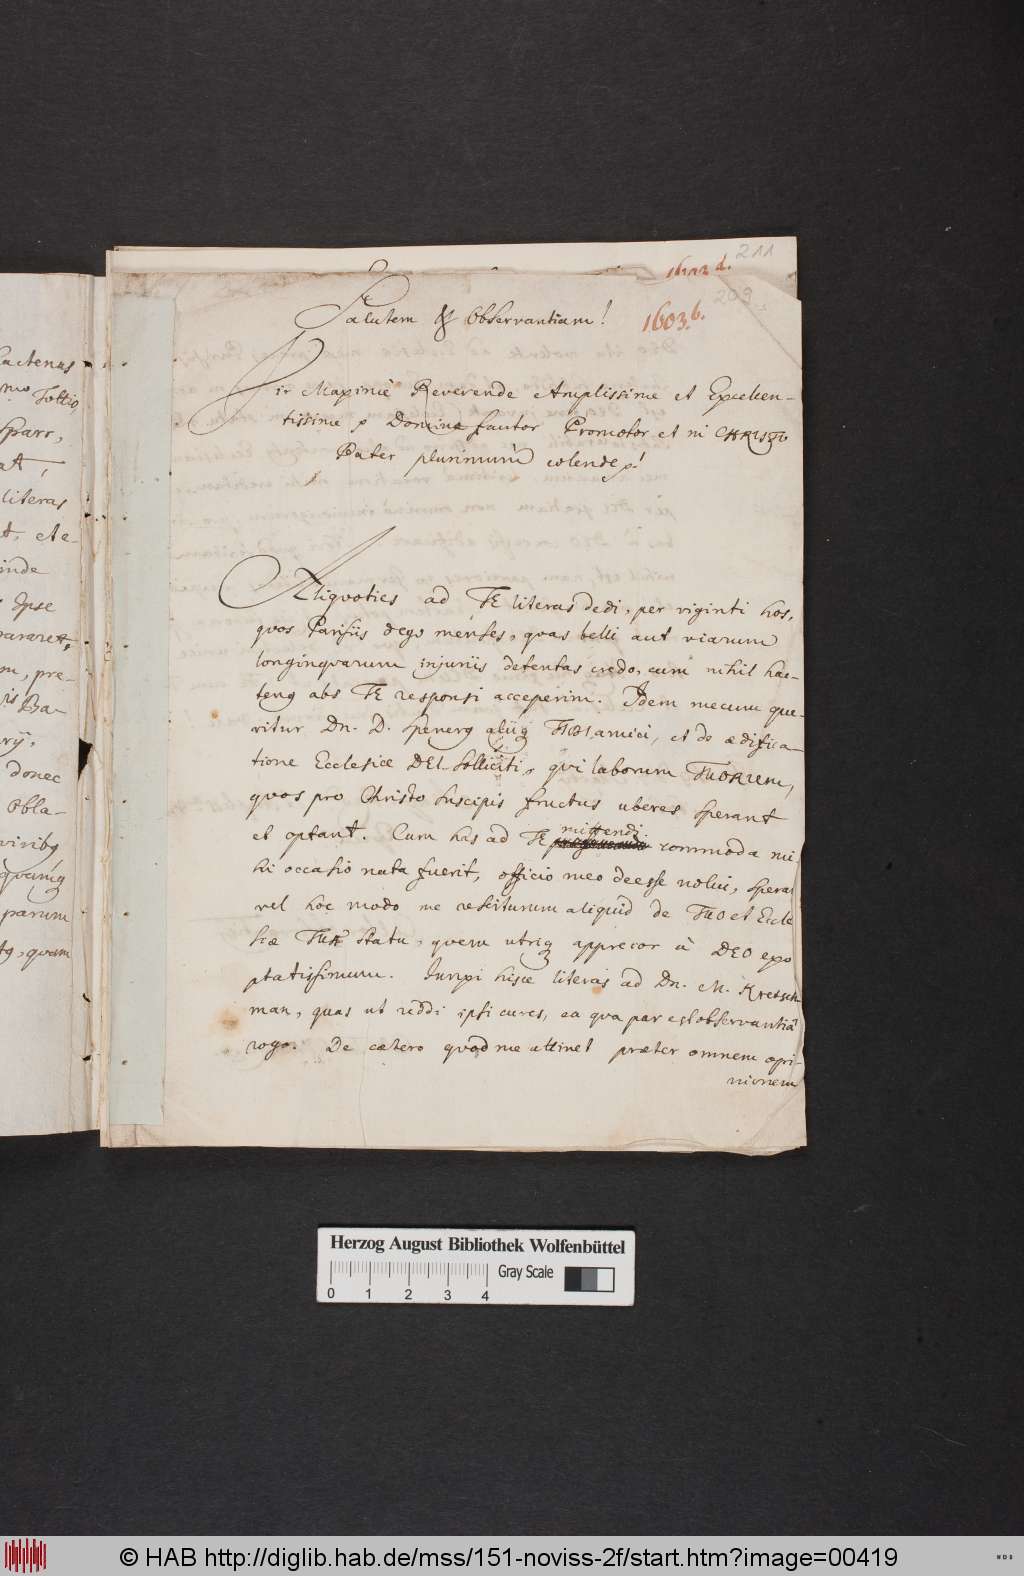 actenus
mo Tottio,
spars,
at,
literas
t, ete-
inde
Ipse
pararett,
m, pre-
is Ba-
rij,
donec
Obla-
viribq
quamq
parum
tq, quam
211
1602 d.
209
1603.b.
Salutem & Observantiam!
Vir Maximè Reverende Amplissime et Excellen-
tissime, Domine fautor Promotor et in CHRISTO
Pater plurimum colende!
Aliquoties ad TE literas dedi, per viginti hos,
quos Parisiis dego menses, quas belli aut viarum
longinquarum injuriis detentas credo, cum nihil hac-
tenq abs TE responsi acceperim. Idem mecum que-
ritur Dn. D. Spenerq aliiq TUI amici, et de ædifica-
tione Ecclesiæ DEI solliciti, qui laborum TUORUM,
quos pro Christo suscipis fructus uberes sperant
et optant. Cum has ad TE mittendi commoda mi-
hi occasio nata fuerit, officio meo deesse nolui, sperans
vel hoc modo me resciturum aliquid de TUO et Eccle
siæ TUÆ statu, quem utriq apprecor à DEO exo
ptatissimum. Junxi hisce literas ad Dn. M. Kretsch
man, quas ut reddi ipsi cures, ea qua par est observantiâ
rogo. De cætero quod me attinet præter omnem opi-
nionem
Herzog August Bibliothek Wolfenbüttel
Gray Scale
0 1 2 3 4
© HAB http://diglib.hab.de/mss/151-noviss-2f/start.htm?image=00419